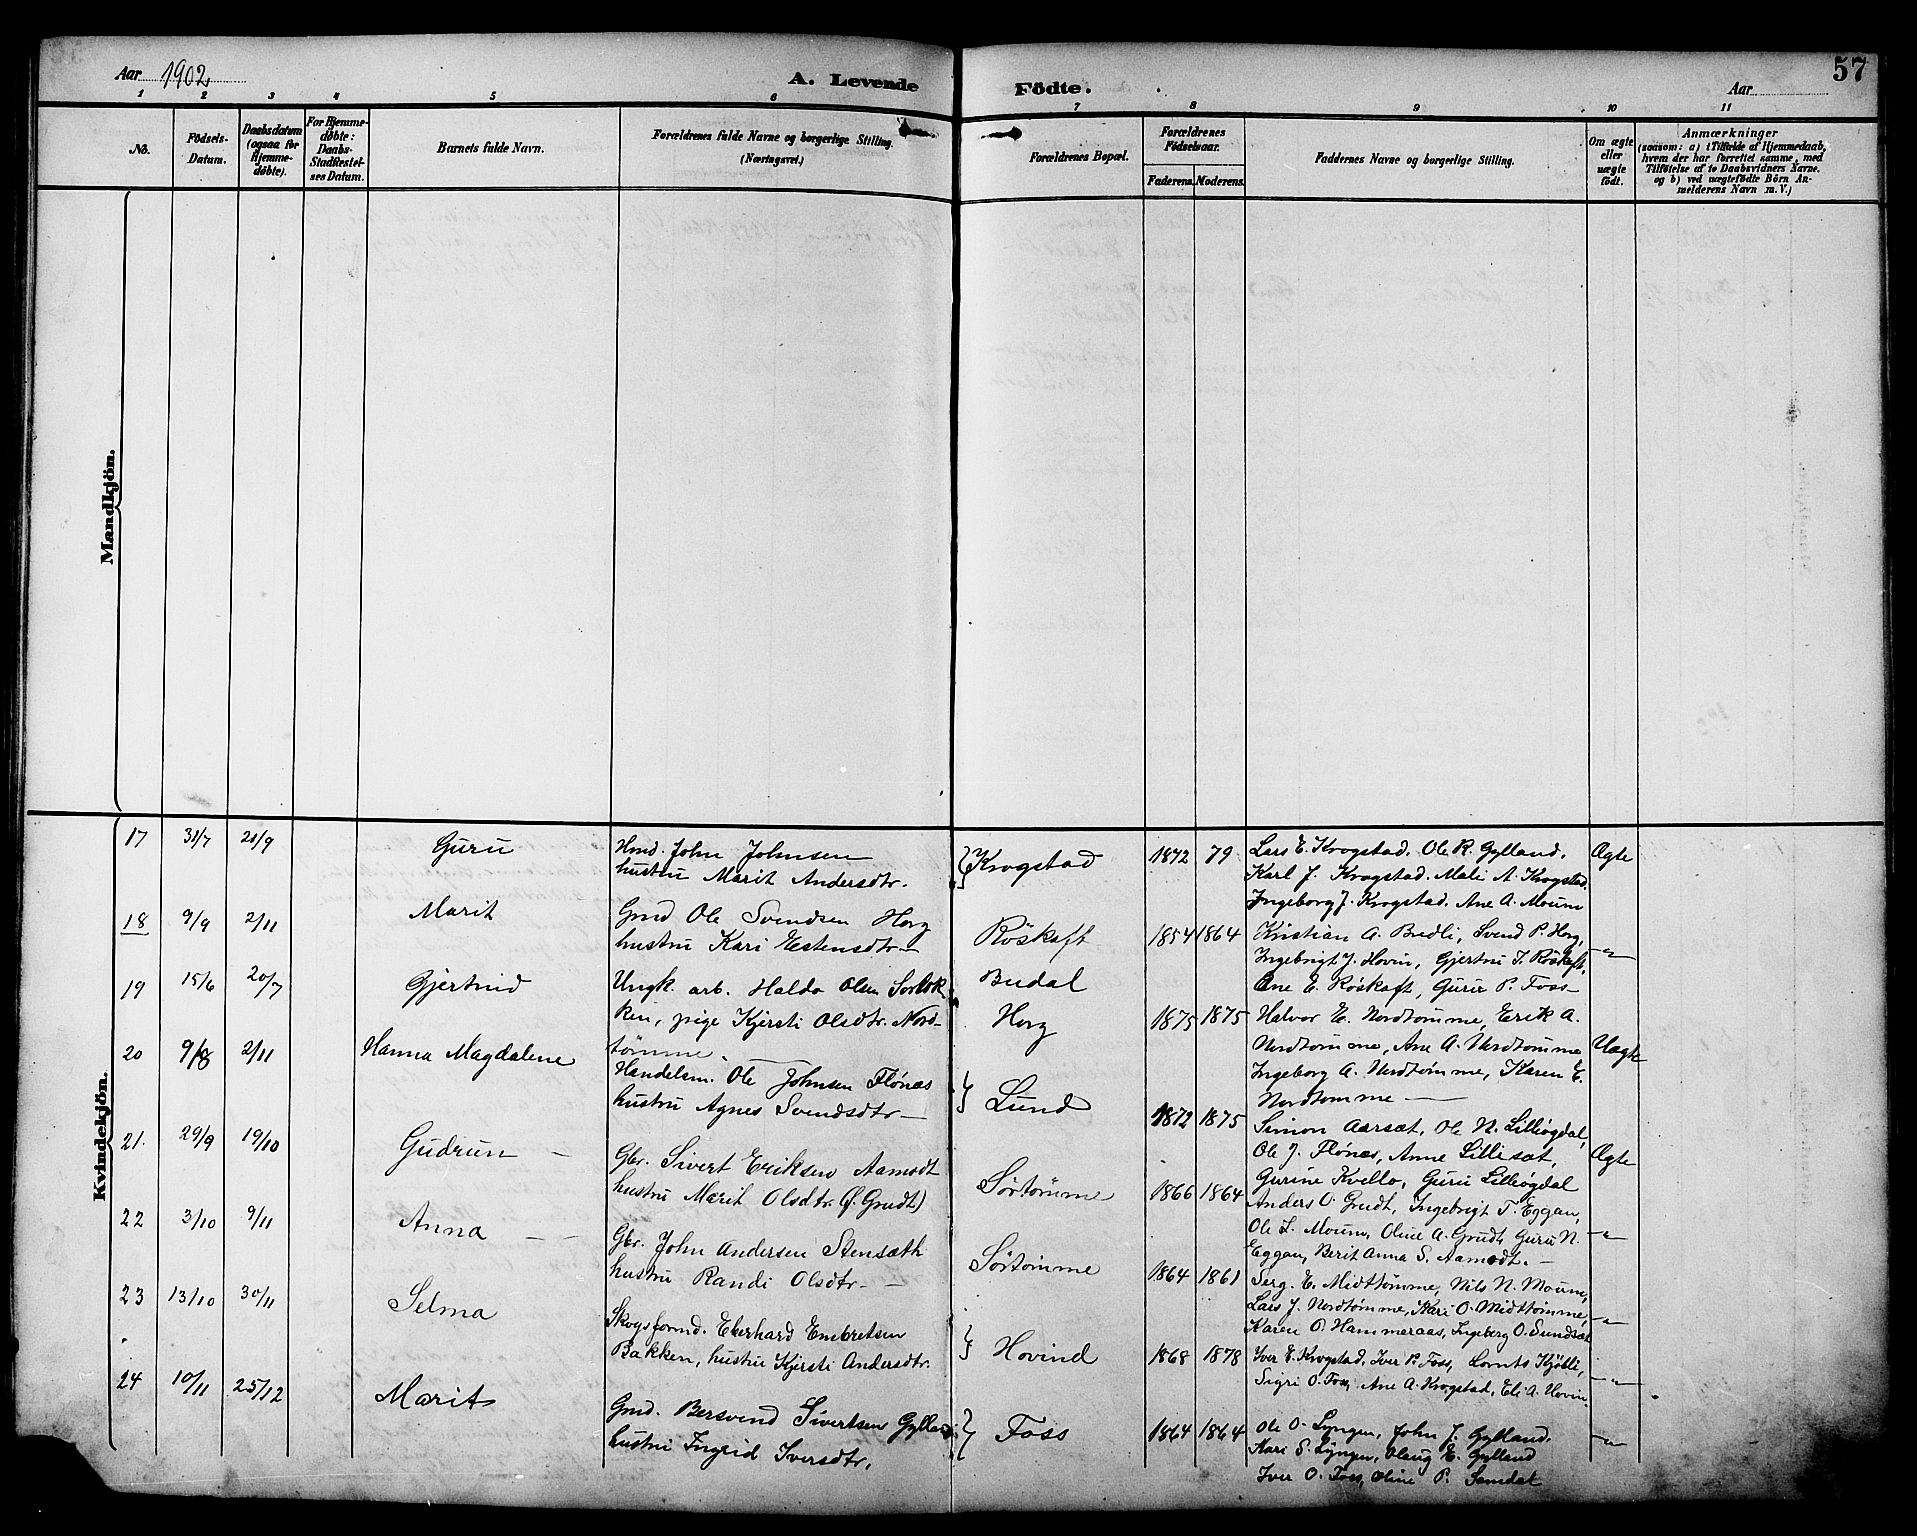 Aar 1902
A. Levende Födte.
Aar
57
1 2 3 4 5 6 7 8 9 10 11
No.
Födsels-
Datum.
Daabsdatum
(ogsaa for
Hjemme-
döbte).
For Hjemme-
döbte:
Daabs-
Stadfæstel-
ses Datum.
Barnets fulde Navn.
Forældrenes fulde Navne og borgerlige Stilling.
(Næringsvei.)
Forældrenes Bopæl.
Forældrenes
Födselsaar.
Faderens. Moderens.
Faddernes Navne og borgerlige Stilling.
Om ægte
eller
uægte
födt.
Anmærkninger
(saasom: a) i Tilfælde af Hjemmedaab,
hvem der har forrettet samme, med
Tilföielse af to Daabsvidners Navne.
og b) ved uægtefödte Börn An-
melderens Navn m. V.)
Mandkjön.
Kvindekjön.
17 31/7 21/9 Guru
Hmd. John Johnsen
hustru Marit Andersdtr.
Krogstad 1872 79
Lars E. Krogstad. Ole R. Gylland.
Karl J. Krogstad. Mali A. Krogstad.
Ingeborg J. Krogstad. Ane A. Moum
Ægte
18 9/9 2/11 Marit
Gmd Ole Svendsen Horg
hustru Kari Estensdtr.
Röskaft 1854 1864
Kristian A. Bredli, Svend P. Horg,
Ingebrigt J. Hovin, Gjertru I. Röskaft,
Ane E. Röskaft, Guru P. Foss
-"-
19 15/6 20/7 Gjertrud
Ungk. arb. Haldo Olsen
ken, pige Kjersti Olsdtr. Nord-
tømme.
Budal
Horg 1875 1875
Halvor E. Nordtømme, Erik A.
Nordtømme, Ane A. Nordtømme
Ingeborg A. Nordtømme, Karen E.
Nordtømme
Uægte
20 9/8 2/11 Hanna Magdalene
Handelsm. Ole Johnsen Flønæs
hustru Agnes Svendsdtr
Lund 1872 1875
Simon Aarsæt, Ole N. Lilleøgdal,
Ole J. Flønæs, Anne Lillesæt,
Gurine Kvello, Guru Lilleøgdal
Ægte
21. 29/9 19/10 Gudrun
Gbr. Sivert Eriksen Aamodt
hustru Marit Olsdtr (f. Grudt)
Sørtømme 1866 1864
Anders O. Grudt, Ingebrigt T. Eggan,
Ole L. Moum, Oline A. Grudt, Guru N.
Eggan, Berit Anna S. Aamodt.
-"-
22 3/10 9/11 Anna
Gbr. John Andersen Stensæth
hustru Randi Olsdtr
Sørtømme 1864 1861
Serg. E. Midttømme, Nils N. Moum,
Lars J. Nordtømme, Kari O. Midttømme,
Karen P. Hammeraas, Ingeberg O. Sundsæt
-"-
23 13/10 30/11 Selma
Skogsformd. Eberhard Embretsen
Bakken, hustru Kjersti Andersdtr.
Hovind 1868 1878
Iver E. Krogstad, Iver P. Foss, Lornts Kjøbli,
Sigri O. Foss, Ane A. Krogstad, Eli A. Hovin.
-"-
24 10/11 25/12 Marit
Gmd. Bersvend Sivertsen Gylland
hustru Ingrid Iversdtr.
Foss 1864 1864
Ole O. Lyngen, John J. Gylland.
Kari S. Lyngen, Olaug E. Gylland
Iver O. Foss, Oline P. Samdal
-"-